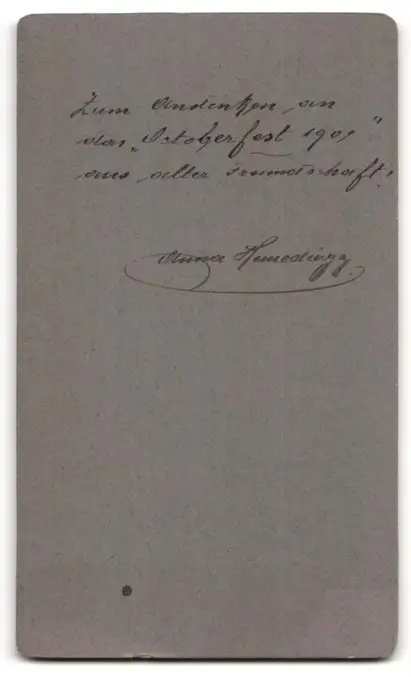 Zum Andenken an
das „Octoberfest 1901“
aus alter Freundschaft!
Anna